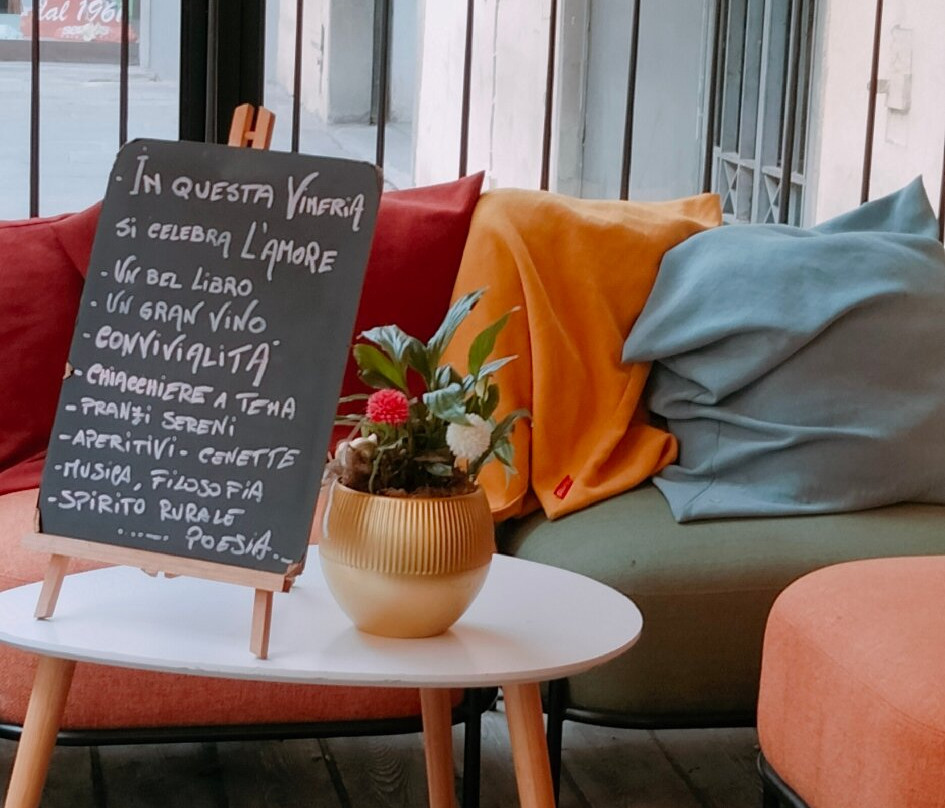 dal 1961
· IN QUESTA VINERIA
SI CELEBRA L'AMORE
- UN BEL LIBRO
- UN GRAN VINO
- CONVIVIALITA'
- CHIACCHIERE A TEMA
- PRANZI SERENI
- APERITIVI - CENETTE
- MUSICA, FILOSOFIA
- SPIRITO RURALE
...... POESIA...